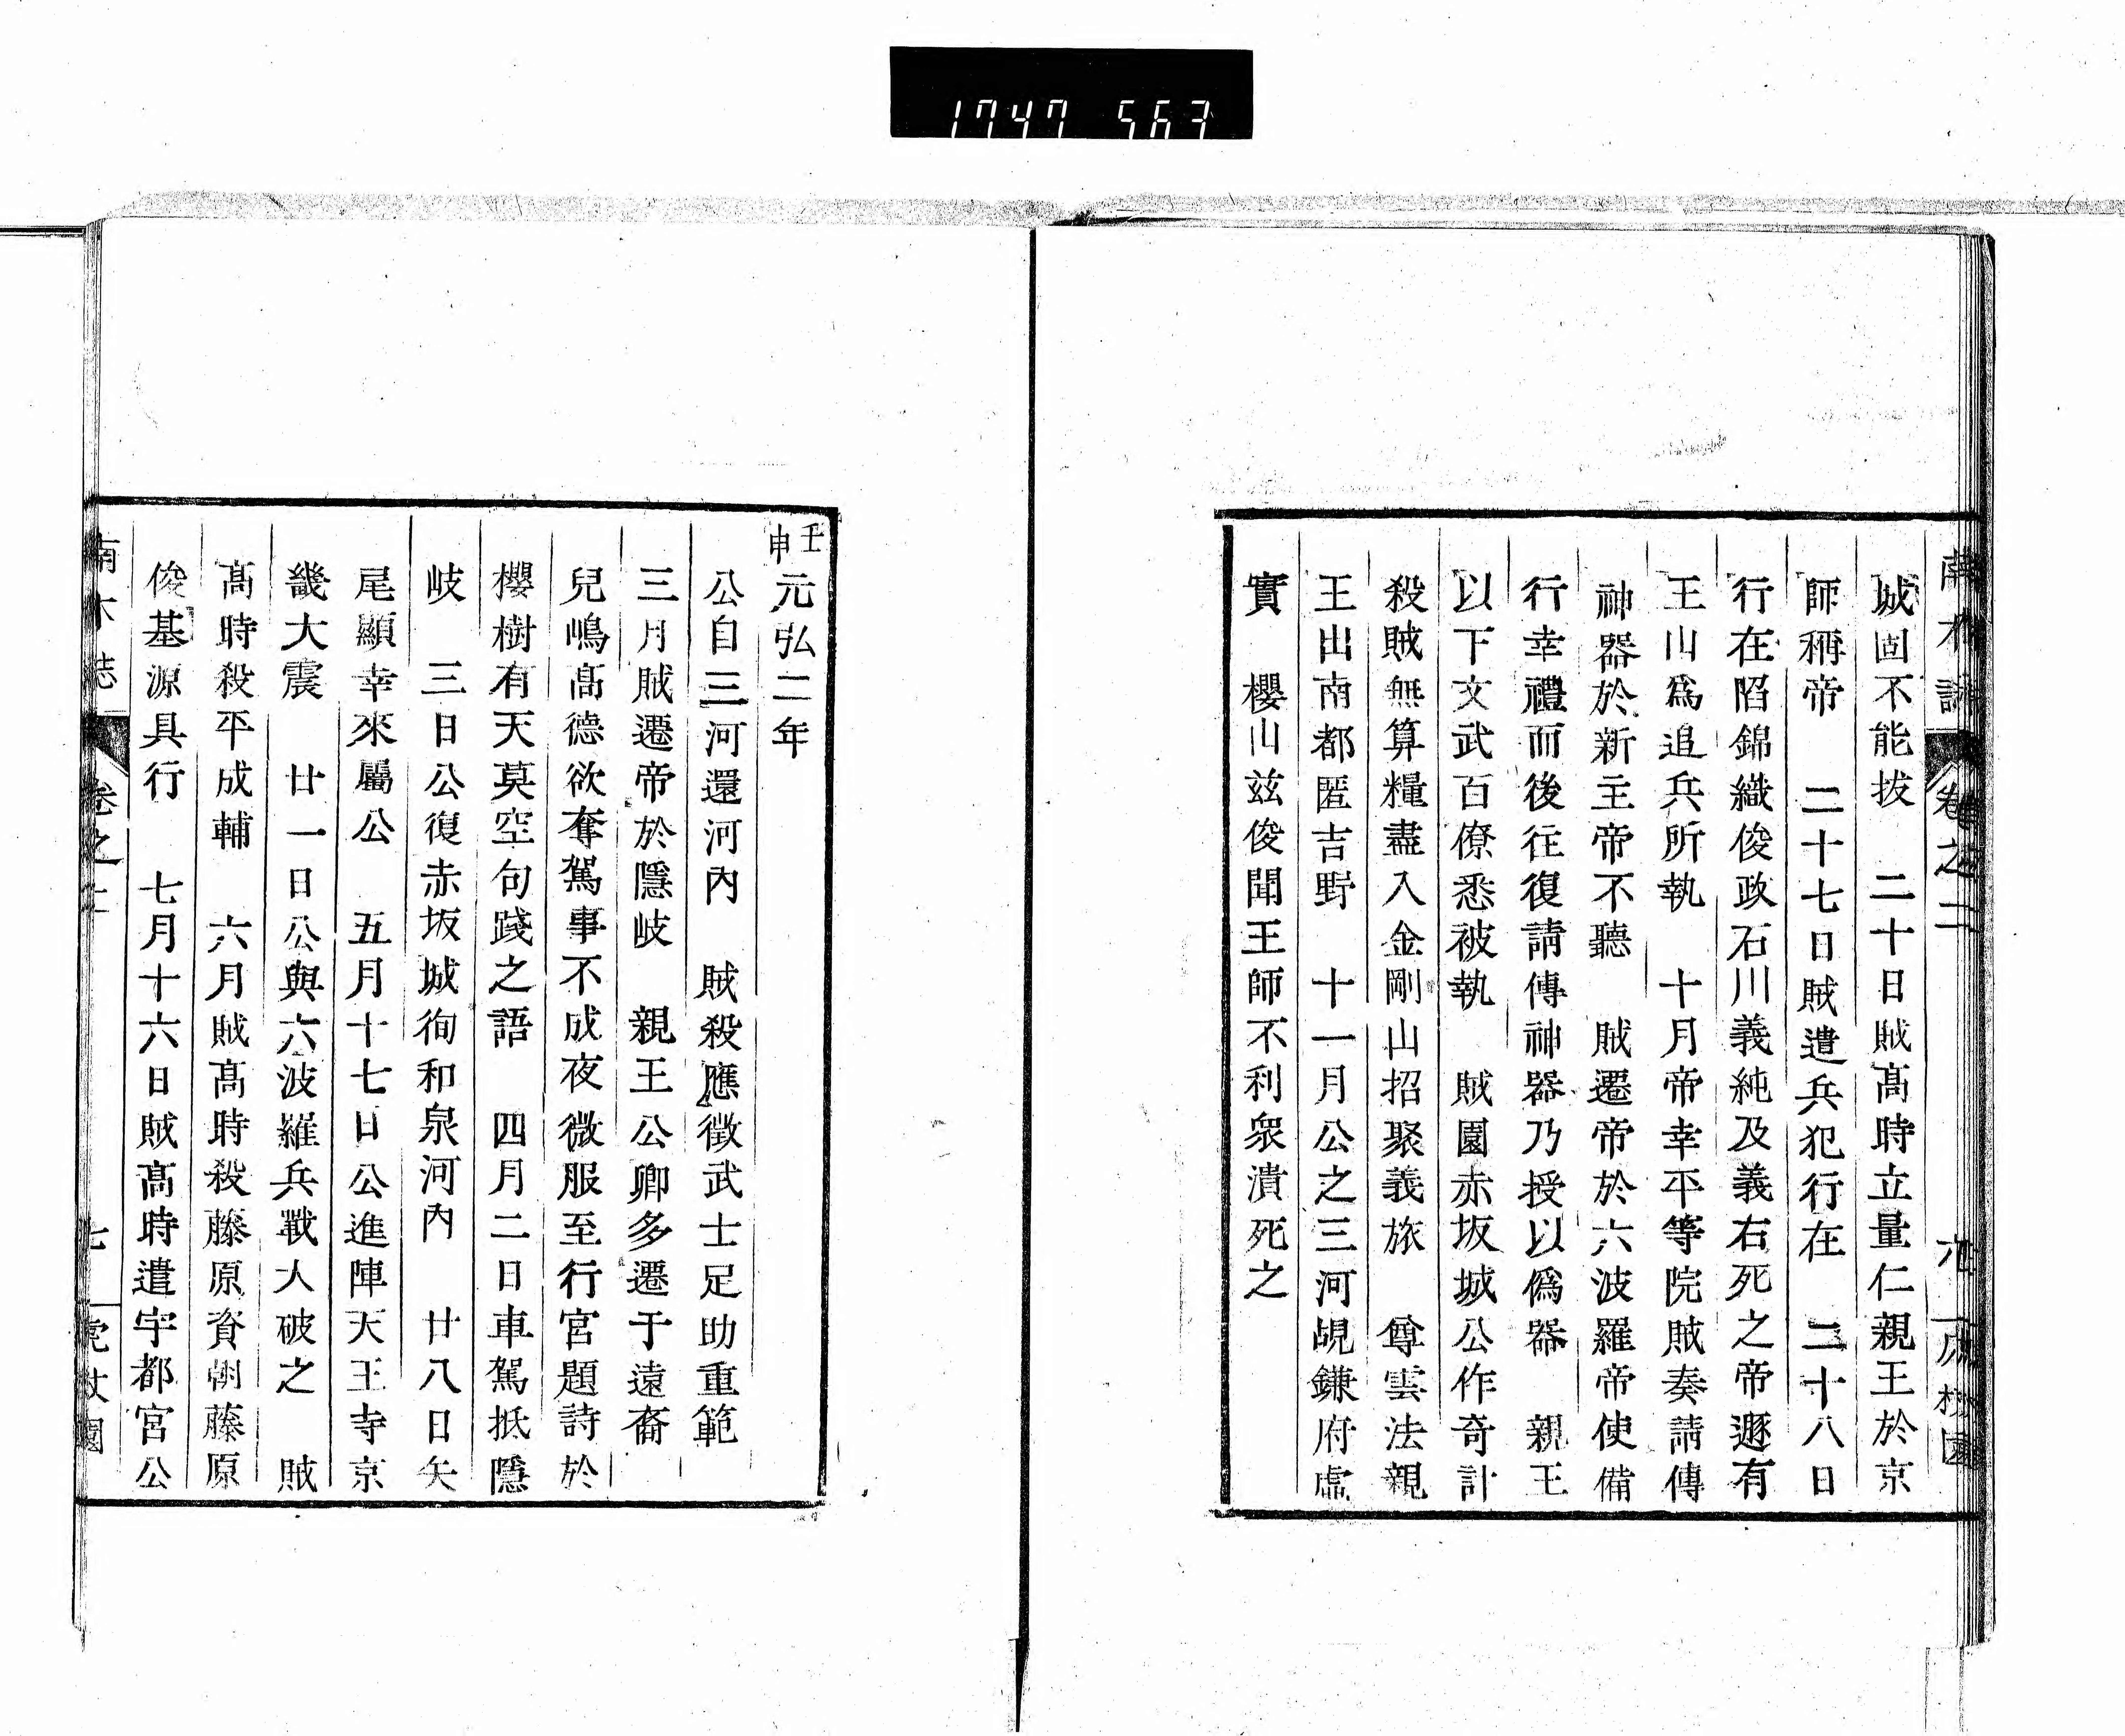 1747 563
城固不能拔　二十日賊高時立量仁親王於京
師稱帝　二十七日賊遣兵犯行在　二十八日
行在陷錦織俊政石川義純及義右死之帝遯有
王山爲追兵所執　十月帝幸平等院賊奏請傳
神器於新主帝不聽　賊遷帝於六波羅帝使備
行幸禮而後往復請傳神器乃授以僞器　親王
以下文武百僚悉被執　賊圍赤坂城公作奇計
殺賊無算糧盡入金剛山招聚義旅　尊雲法親
王出南都匿吉野　十一月公之三河覘鎌府虛
實　櫻山兹俊聞王師不利衆潰死之
壬申元弘二年
公自三河還河內　賊殺應徵武士足助重範
三月賊遷帝於隱岐　親王公卿多遷于遠裔
兒嶋高德欲奪駕事不成夜微服至行宮題詩於
櫻樹有天莫空句踐之語　四月二日車駕抵隱
岐　三日公復赤坂城徇和泉河內　廿八日矢
尾顯幸來屬公　五月十七日公進陣天王寺京
畿大震　廿一日公與六波羅兵戰大破之　賊
高時殺平成輔　六月賊高時殺藤原資朝藤原
俊基源具行　七月十六日賊高時遣宇都宮公
南木誌　卷之二　七